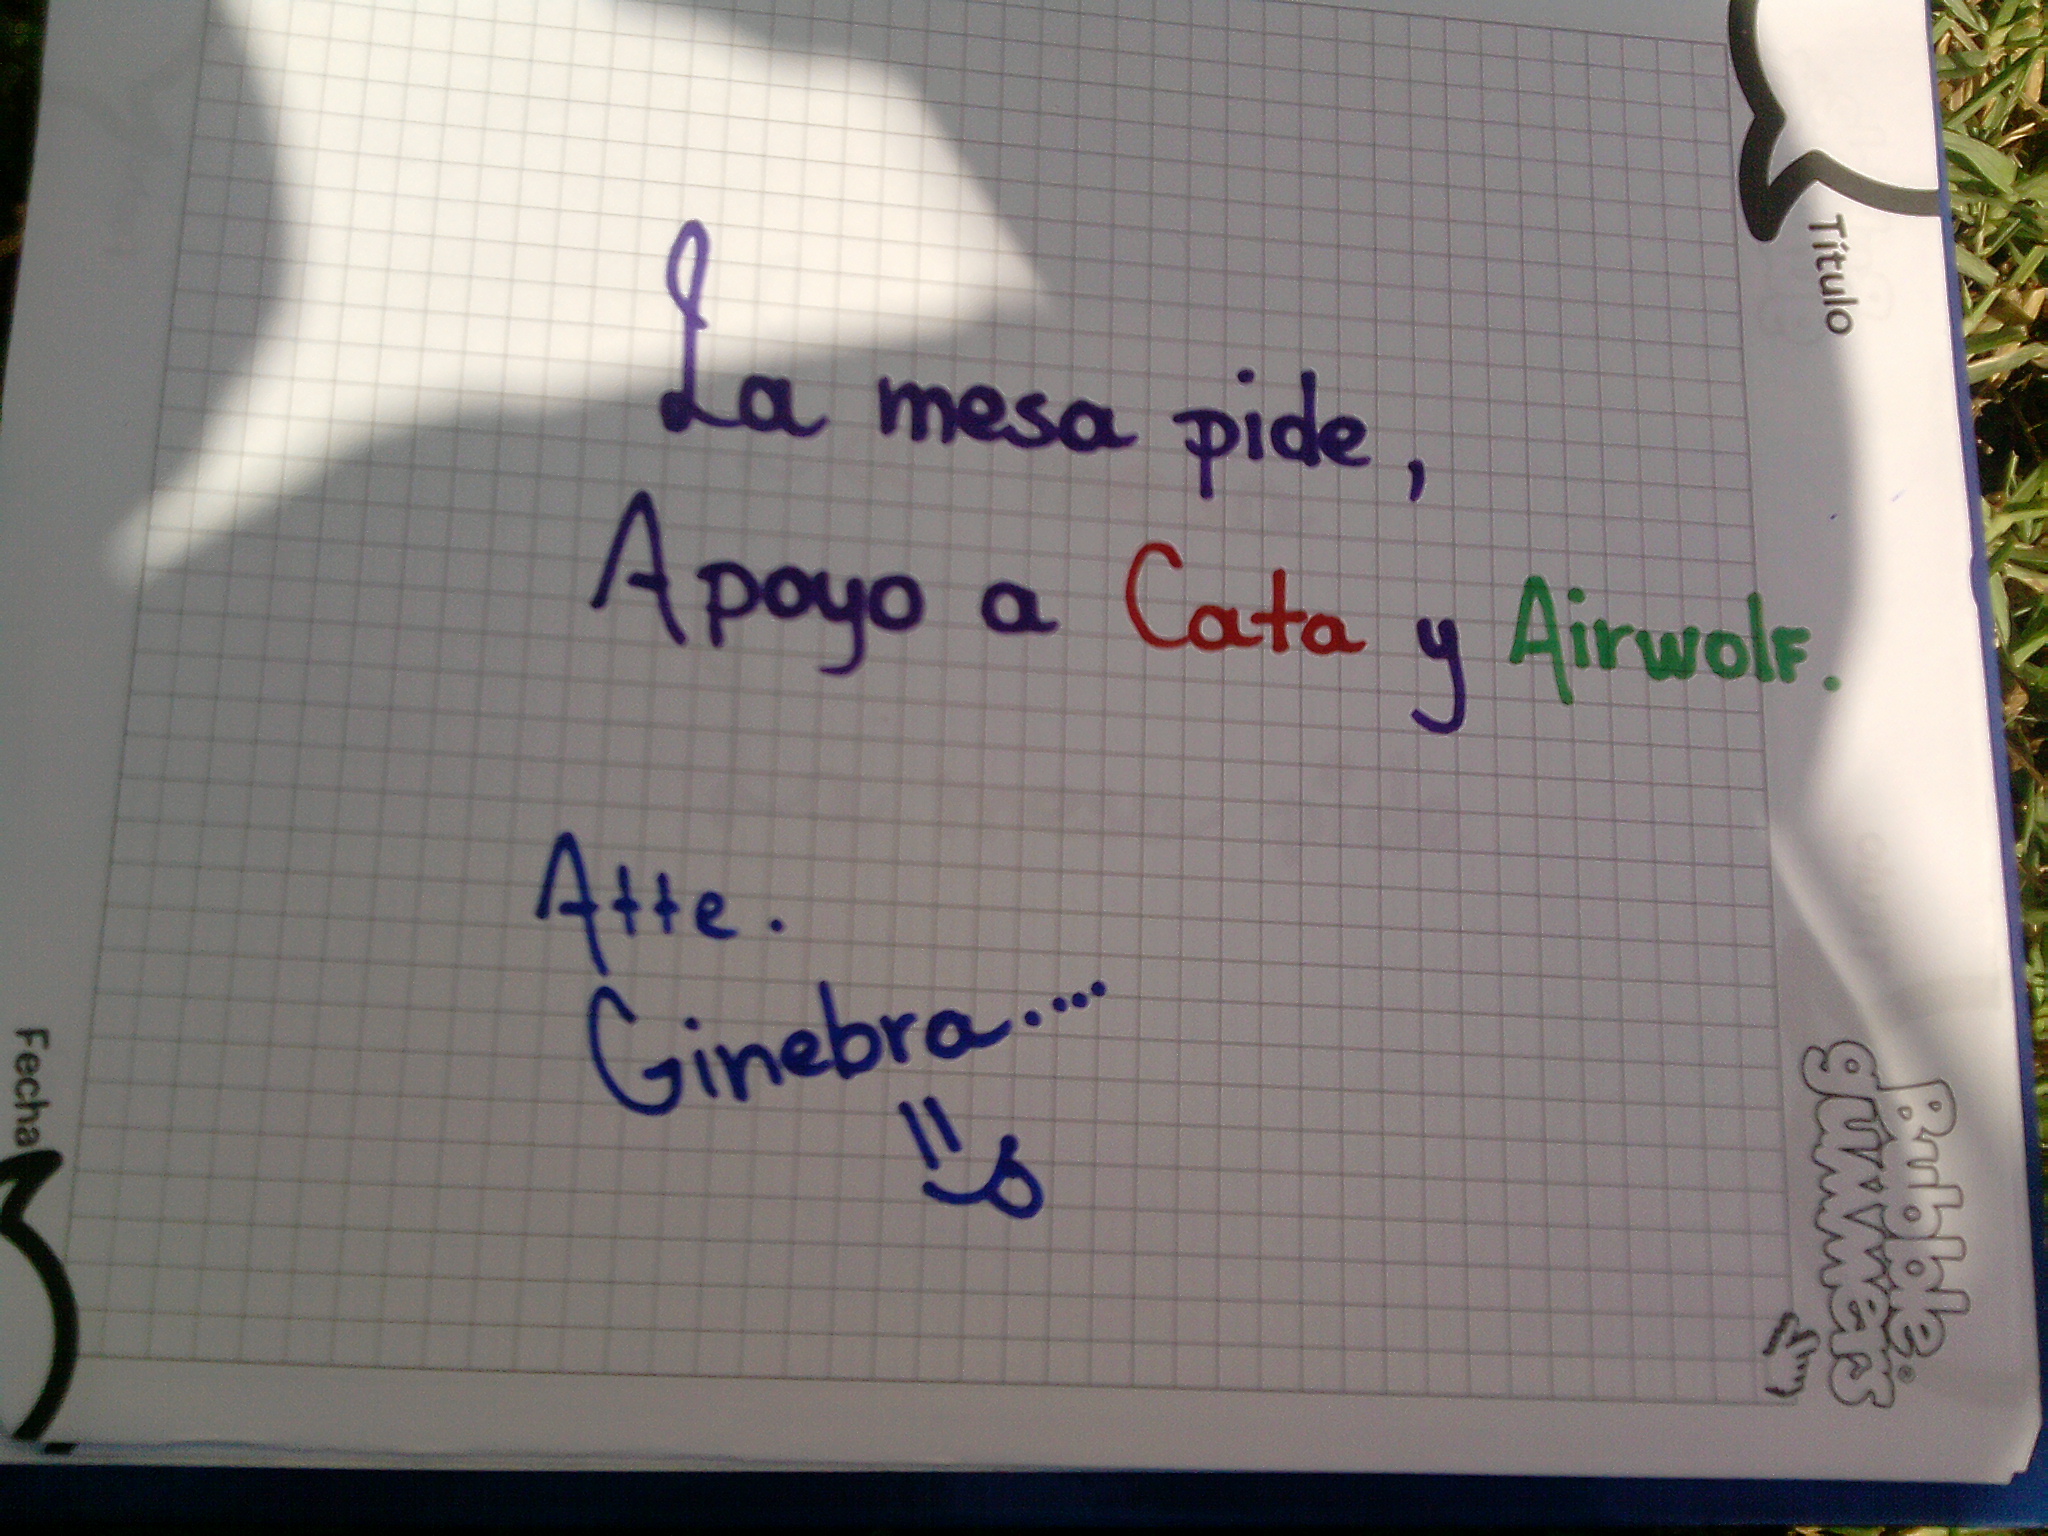 La mesa pide,
Apoyo a Cata y Airwolf.
Atte.
Ginebra....
Título
Fecha
Bubble
gummers®